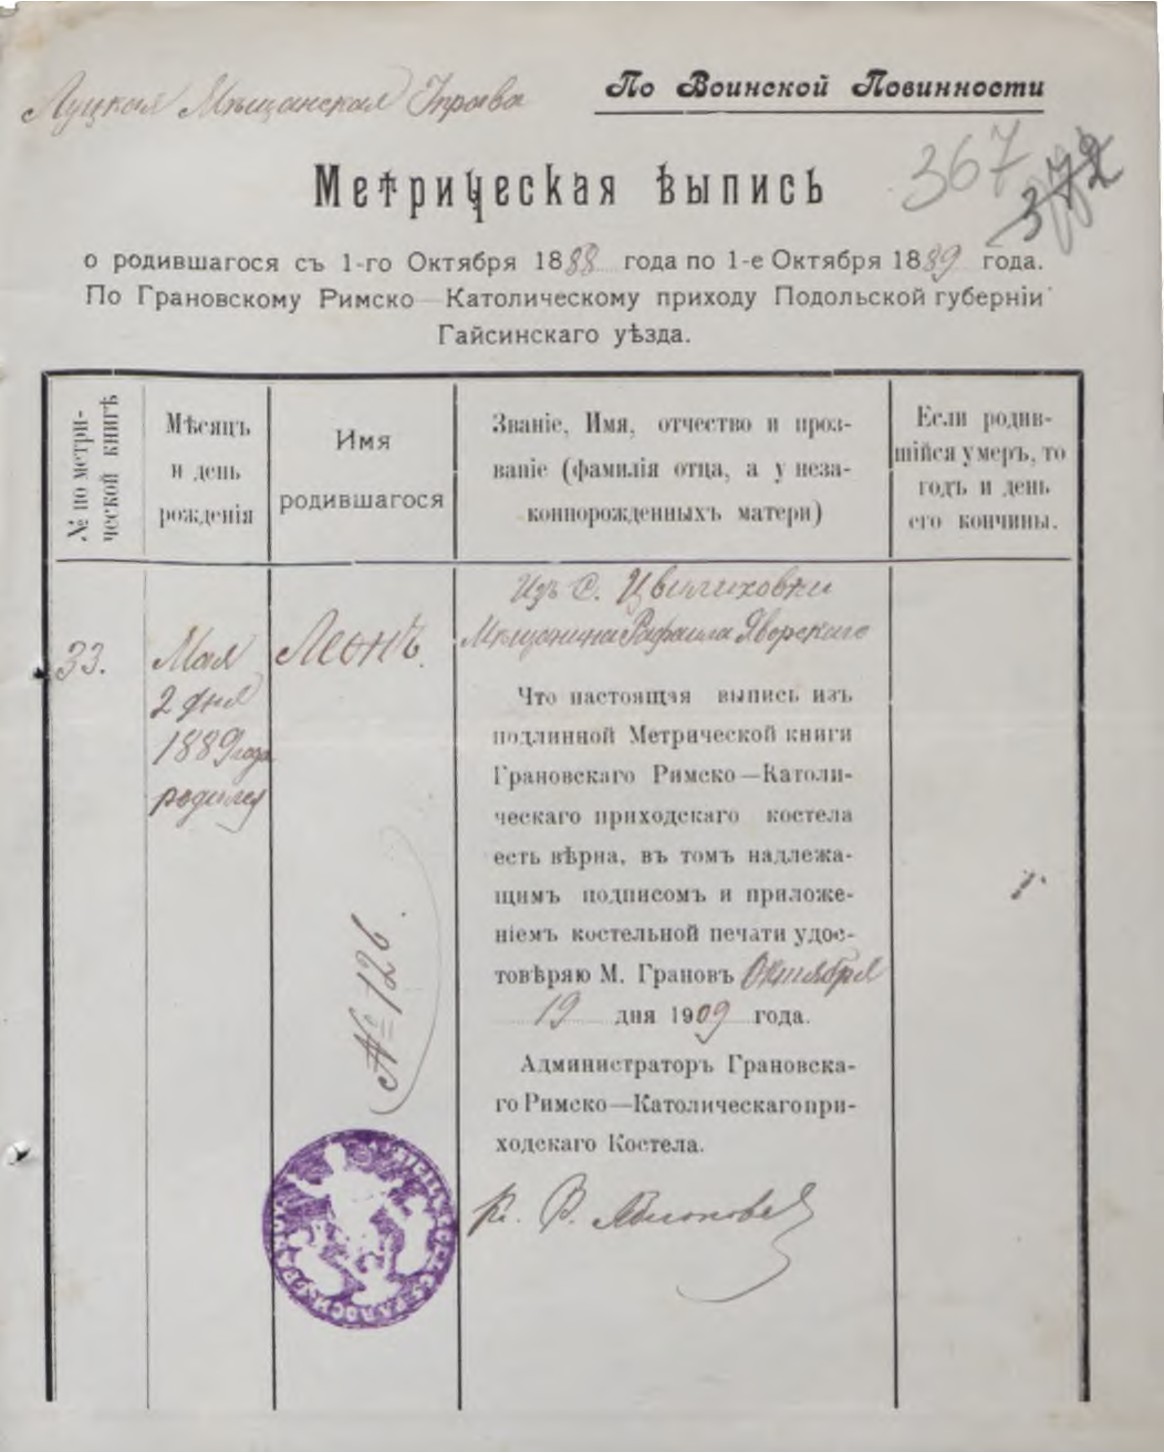 Луцкая Мѣщанская Управа
По Воинской Повинности
367
372
Метрическая выпись
о родившагося съ 1-го Октября 1888 года по 1-е Октября 1889 года.
По Грановскому Римско—Католическому приходу Подольской губерніи
Гайсинскаго уѣзда.
№ по метри-
ческой книгѣ
Мѣсяцъ
и день
рожденія
Имя
родившагося
Званіе, Имя, отчество и проз-
ваніе (фамилія отца, а у неза-
коннорожденныхъ матери)
Если родив-
шійся умеръ, то
годъ и день
его кончины.
33.
Мая
2 дня
1889 года
родился
Леонъ.
Изъ С. Цвилиховки
Мѣщанина Рафаила Яворскаго
Что настоящая выпись изъ
подлинной Метрической книги
Грановскаго Римско—Католи-
ческаго приходскаго костела
есть вѣрна, въ томъ надлежа-
щимъ подписомъ и приложе-
ніемъ костельной печати удос-
товѣряю М. Грановъ Октября
19 дня 1909 года.
Администраторъ Грановска-
го Римско—Католическаго при-
ходскаго Костела.
К. В.
№ 126.